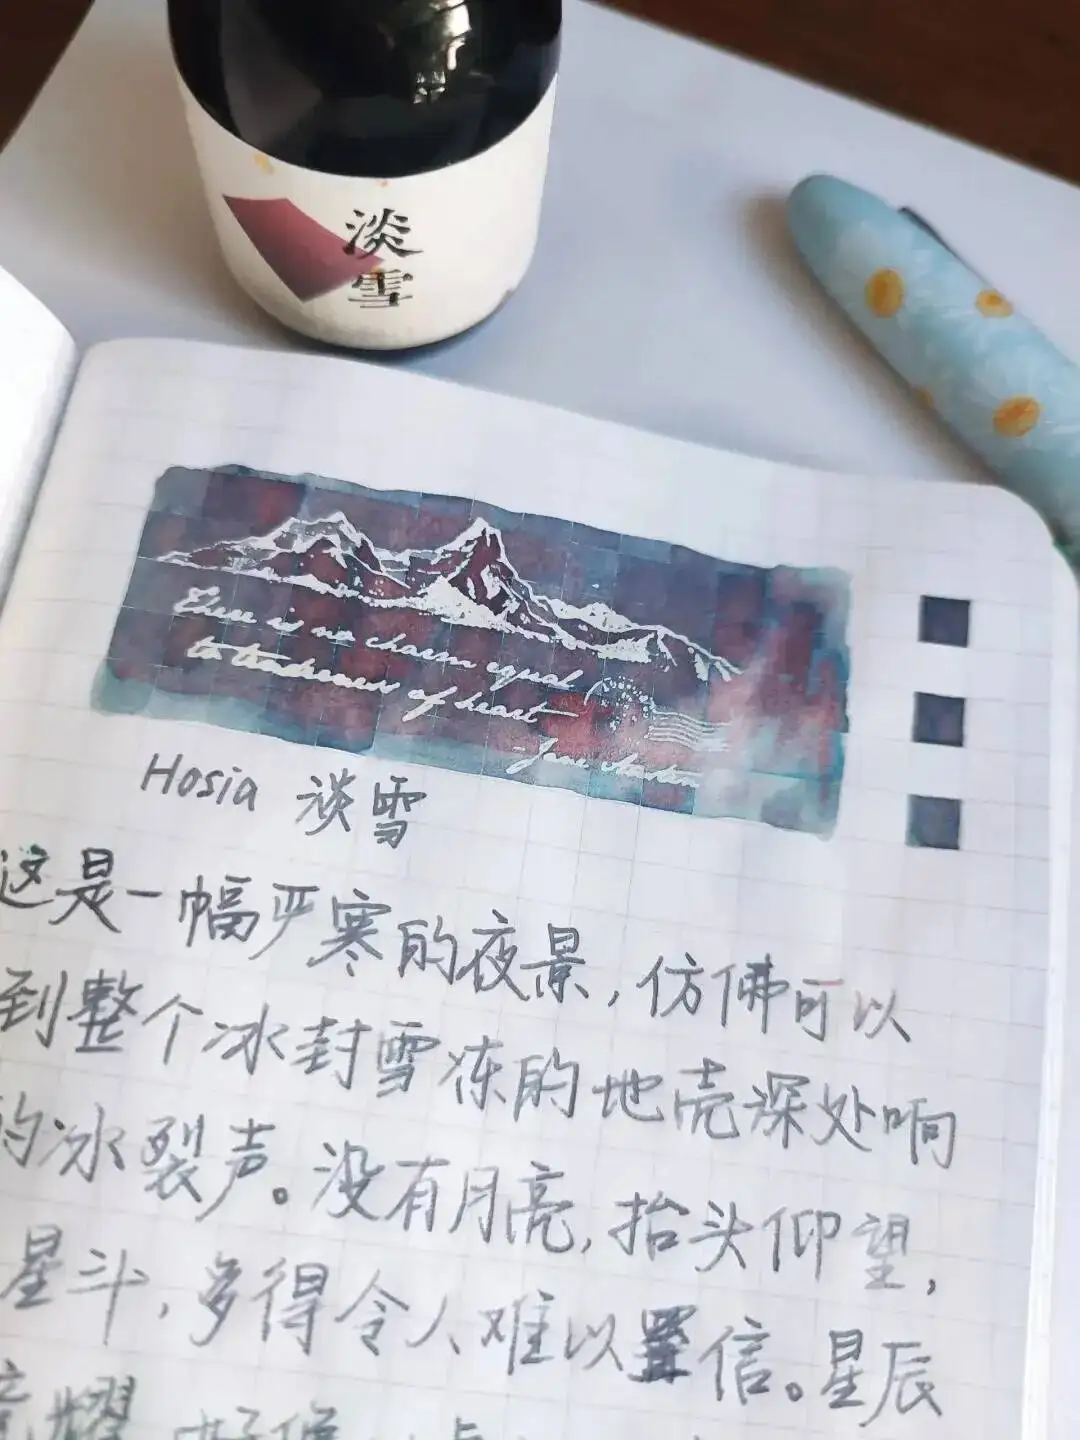 淡
雪
There is no charm equal
to tenderness of heart
-Jane Austen
Hosia 淡雪
这是一幅严寒的夜景，仿佛可以
到整个冰封雪冻的地壳深处响
的冰裂声。没有月亮，抬头仰望，
星斗，多得令人难以置信。星辰
耀